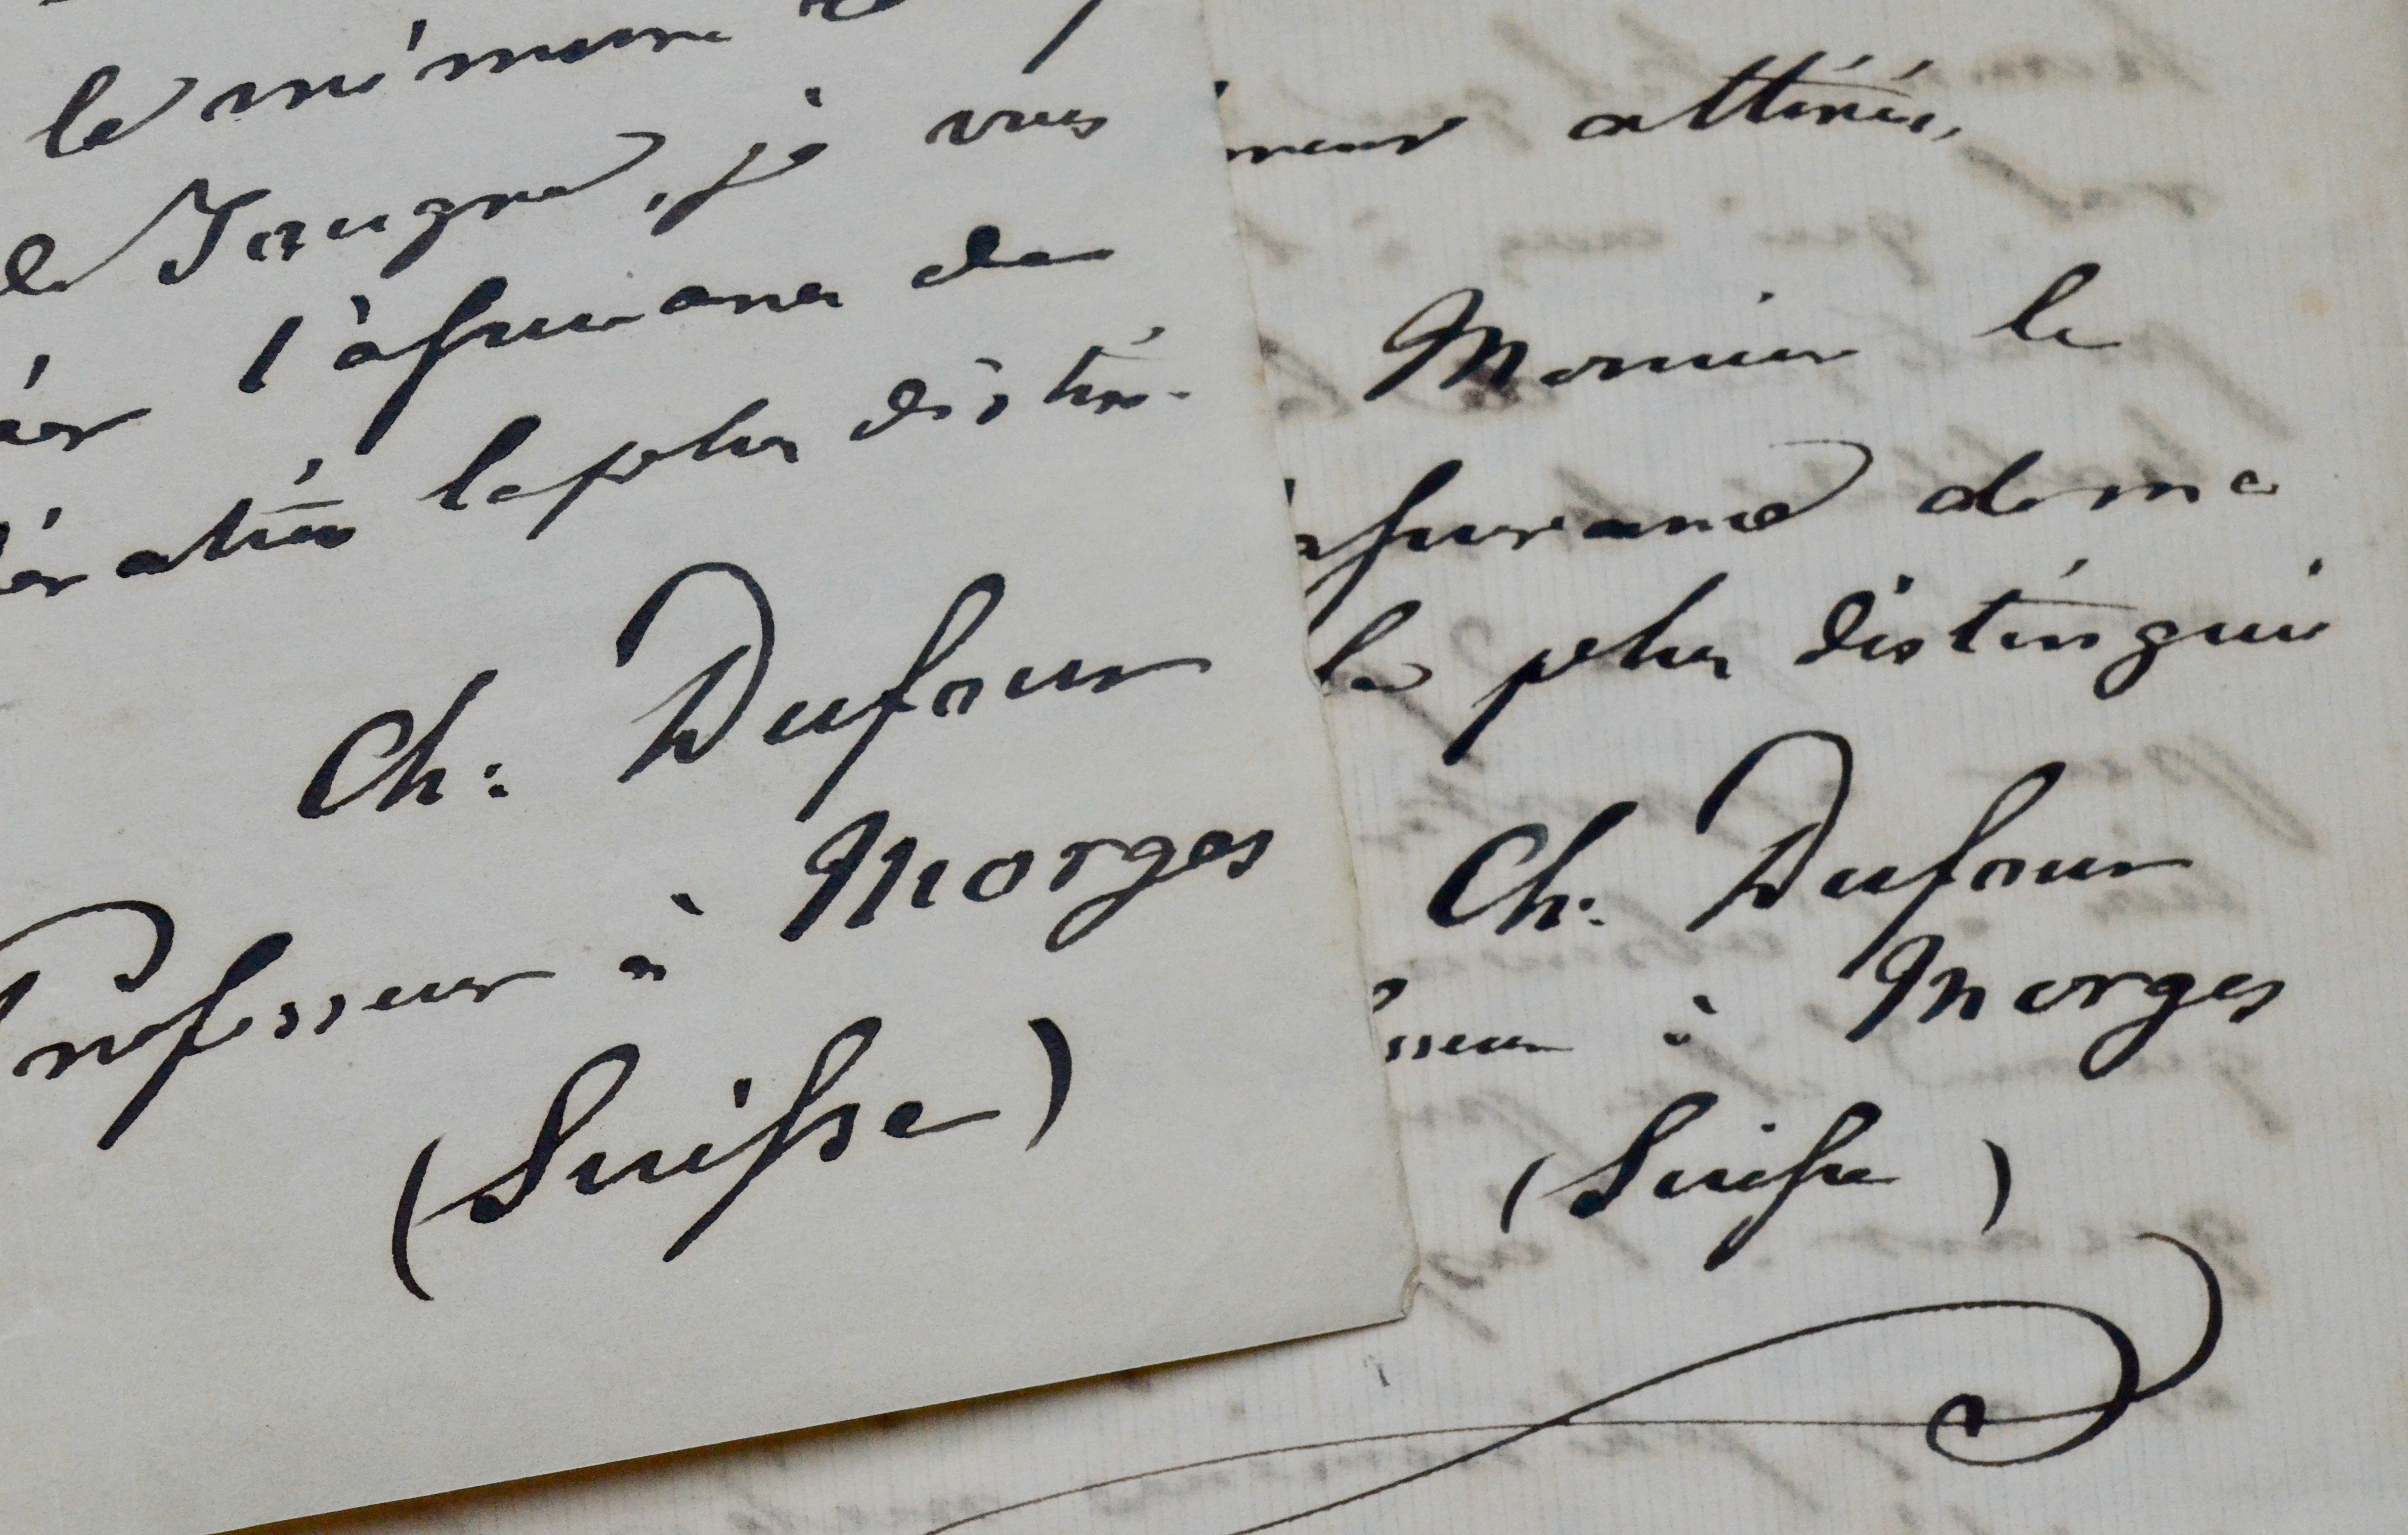 le
de Jougne, je vous
l'assurance de
la plus distin-
Ch: Dufour
Professeur à Morges
(Suisse)
attirés,
Monsieur le
assurance de ma
la plus distinguée
Ch: Dufour
sseur à Morges
(Suisse)